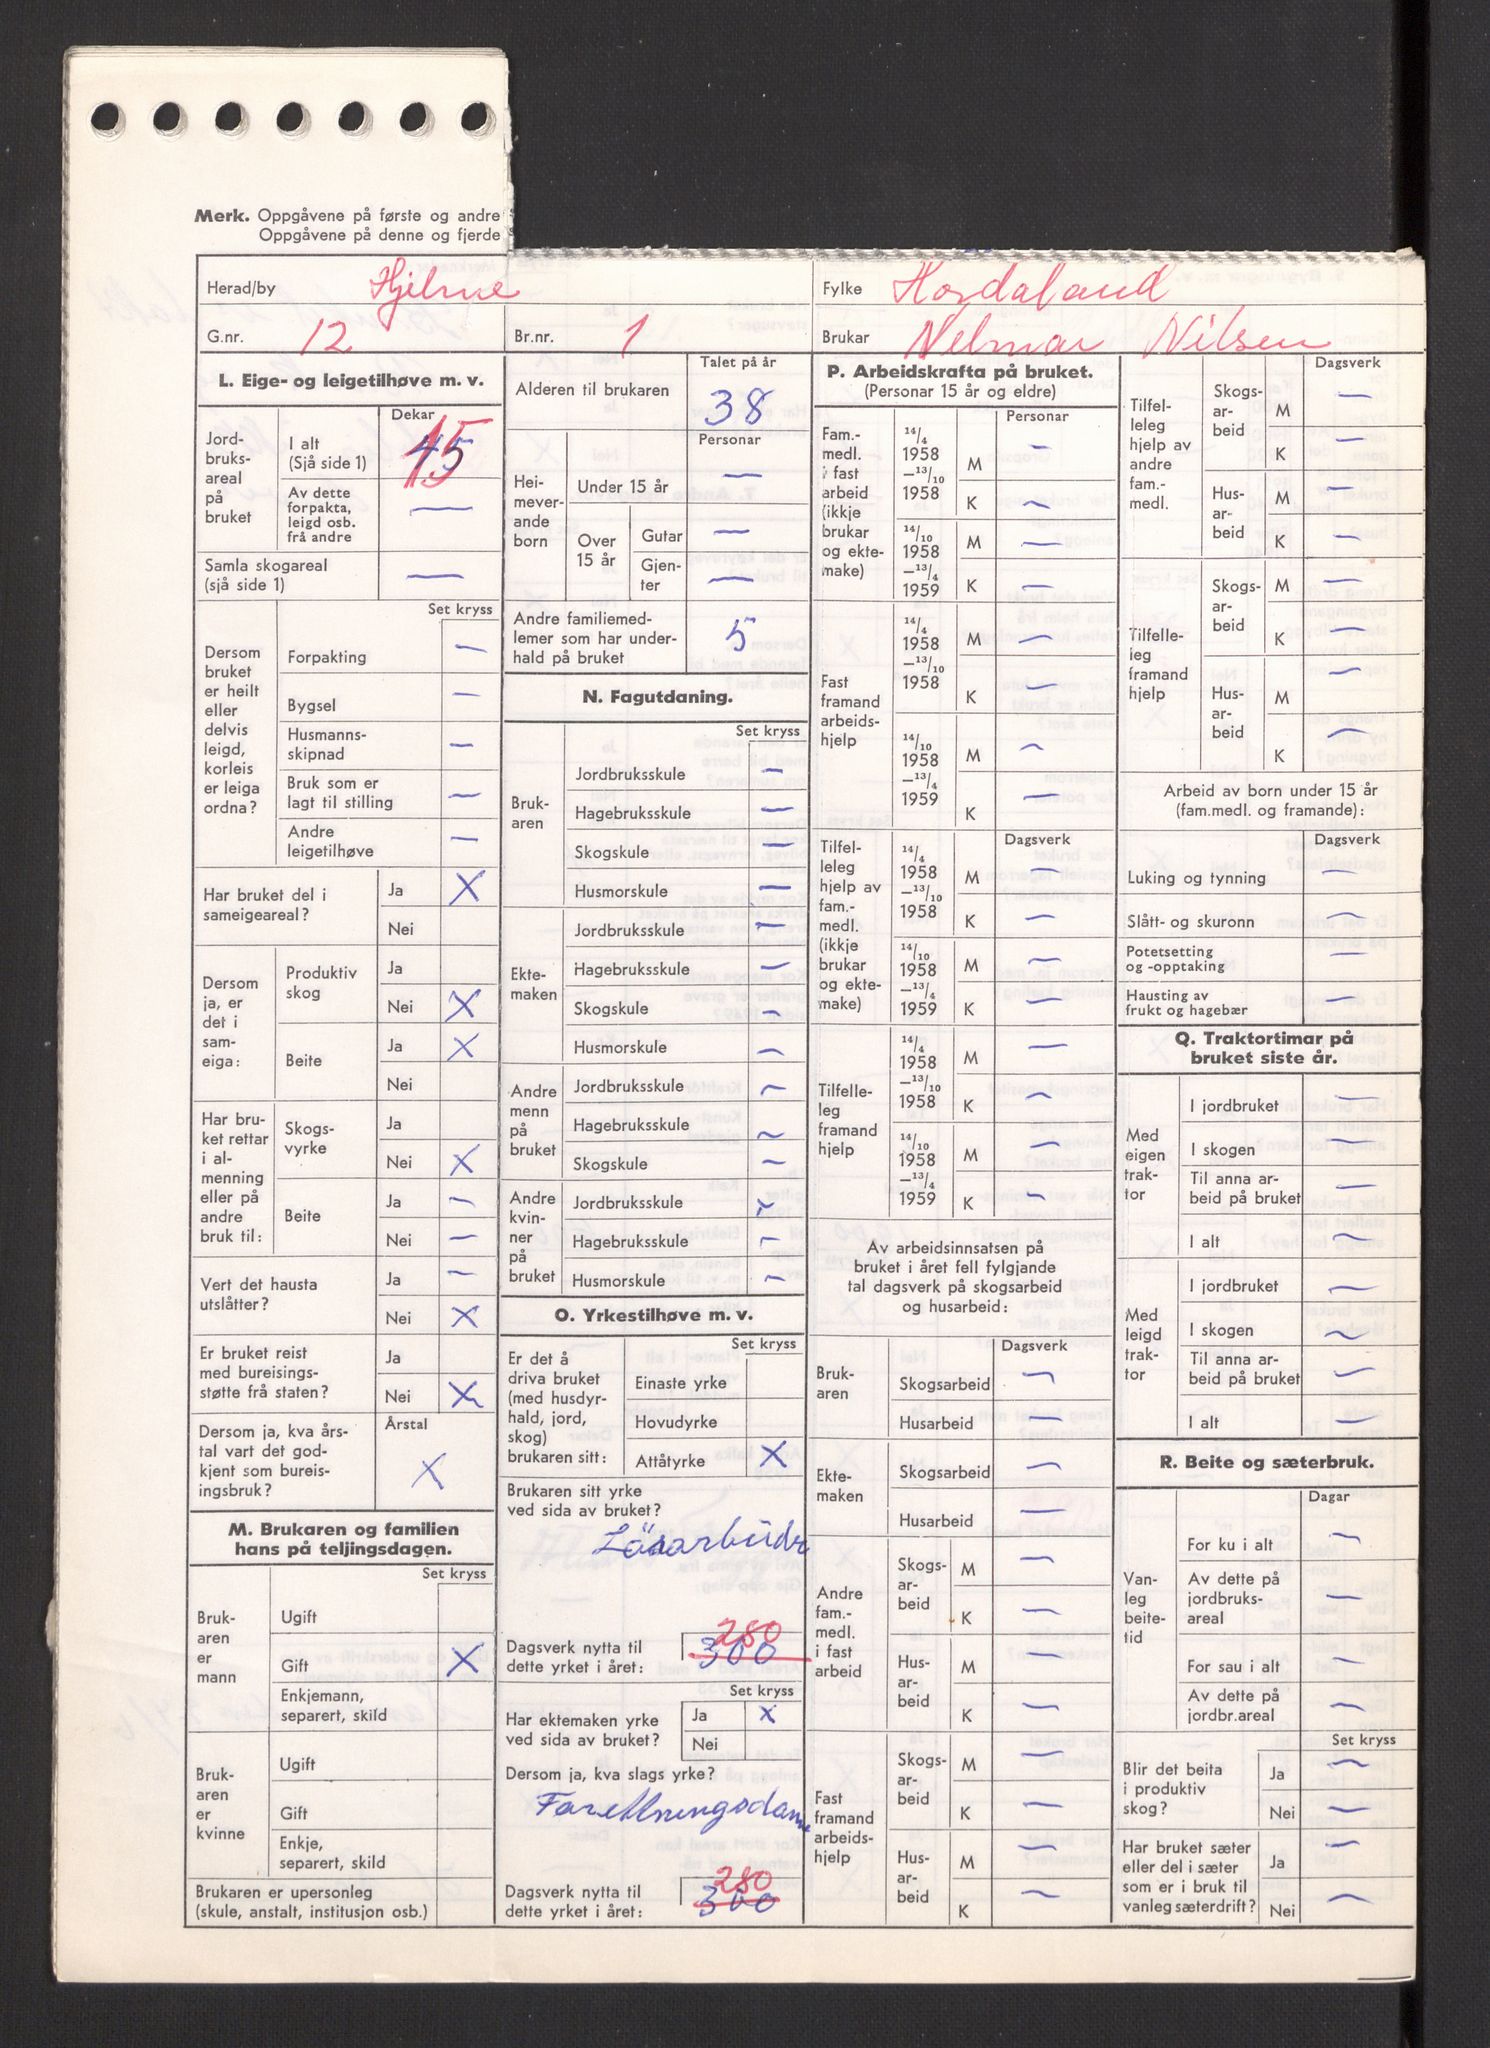 Merk. Oppgåvene på første og andre
Oppgåvene på denne og fjerde
Herad/by Hjelme
Fylke Hordaland
G.nr. 12
Br.nr. 1
Brukar Nelmar Nilsen
L. Eige- og leigetilhøve m. v.
Dekar
Jord-
bruks-
areal
på
bruket
I alt
(Sjå side 1)
15
Av dette
forpakta,
leigd osb.
frå andre
—
Samla skogareal
(sjå side 1)
—
Set kryss
Dersom
bruket
er heilt
eller
delvis
leigd,
korleis
er leiga
ordna?
Forpakting —
Bygsel —
Husmanns-
skipnad —
Bruk som er
lagt til stilling —
Andre
leigetilhøve —
Har bruket del i
sameigeareal?
Ja X
Nei
Dersom
ja, er
det i
sam-
eiga:
Produktiv
skog
Ja
Nei X
Beite
Ja X
Nei
Har bru-
ket rettar
i al-
menning
eller på
andre
bruk til:
Skogs-
vyrke
Ja
Nei X
Beite
Ja —
Nei —
Vert det hausta
utslåtter?
Ja —
Nei X
Er bruket reist
med bureisings-
støtte frå staten?
Ja
Nei X
Dersom ja, kva års-
tal vart det god-
kjent som bureis-
ingsbruk?
Årstal
X
M. Brukaren og familien
hans på teljingsdagen.
Set kryss
Bruk-
aren
er
mann
Ugift
Gift X
Enkjemann,
separert, skild
Bruk-
aren
er
kvinne
Ugift
Gift
Enkje,
separert, skild
Brukaren er upersonleg
(skule, anstalt, institusjon osb.)
Talet på år
Alderen til brukaren 38
Personar
Hei-
mever-
ande
born
Under 15 år —
Over
15 år
Gutar —
Gjen-
ter —
Andre familiemed-
lemer som har under-
hald på bruket 5
N. Fagutdaning.
Set kryss
Bruk-
aren
Jordbruksskule —
Hagebruksskule —
Skogskule —
Husmorskule —
Ekte-
maken
Jordbruksskule —
Hagebruksskule —
Skogskule —
Husmorskule —
Andre
menn
på
bruket
Jordbruksskule —
Hagebruksskule —
Skogskule —
Andre
kvin-
ner
på
bruket
Jordbruksskule —
Hagebruksskule —
Husmorskule —
O. Yrkestilhøve m. v.
Set kryss
Er det å
driva bruket
(med husdyr-
hald, jord,
skog)
brukaren sitt:
Einaste yrke
Hovudyrke
Attåtyrke X
Brukaren sitt yrke
ved sida av bruket?
Lösarbeidr
280
Dagsverk nytta til
dette yrket i året: 300
Set kryss
Har ektemaken yrke
ved sida av bruket?
Ja X
Nei
Dersom ja, kva slags yrke?
Forettningsdame
280
Dagsverk nytta til
dette yrket i året: 300
P. Arbeidskrafta på bruket.
(Personar 15 år og eldre)
Personar
Fam.-
medl.
i fast
arbeid
(ikkje
brukar
og ekte-
make)
14/4
1958
—13/10
1958
M —
K —
14/10
1958
—13/4
1959
M —
K —
Fast
framand
arbeids-
hjelp
14/4
1958
—13/10
1958
M —
K —
14/10
1958
—13/4
1959
M —
K —
Dagsverk
Tilfel-
leleg
hjelp av
fam.-
medl.
(ikkje
brukar
og ekte-
make)
14/4
1958
—13/10
1958
M —
K —
14/10
1958
—13/4
1959
M —
K —
Tilfelle-
leg
framand
hjelp
14/4
1958
—13/10
1958
M —
K —
14/10
1958
—13/4
1959
M —
K —
Av arbeidsinnsatsen på
bruket i året fell fylgjande
tal dagsverk på skogsarbeid
og husarbeid:
Dagsverk
Bruk-
aren
Skogsarbeid —
Husarbeid —
Ekte-
maken
Skogsarbeid —
Husarbeid —
Andre
fam.-
medl.
i fast
arbeid
Skogs-
ar-
beid
M —
K —
Hus-
ar-
beid
M —
K —
Fast
framand
arbeids-
hjelp
Skogs-
ar-
beid
M —
K —
Hus-
ar-
beid
M —
K —
Dagsverk
Tilfel-
leleg
hjelp av
andre
fam.-
medl.
Skogs-
ar-
beid
M —
K —
Hus-
ar-
beid
M —
K —
Tilfelle-
leg
framand
hjelp
Skogs-
ar-
beid
M —
K —
Hus-
ar-
beid
M —
K —
Arbeid av born under 15 år
(fam.medl. og framande):
Dagsverk
Luking og tynning —
Slått- og skuronn —
Potetsetting
og -opptaking —
Hausting av
frukt og hagebær —
Q. Traktortimar på
bruket siste år.
Med
eigen
trak-
tor
I jordbruket —
I skogen —
Til anna ar-
beid på bruket —
I alt —
Med
leigd
trak-
tor
I jordbruket —
I skogen —
Til anna ar-
beid på bruket —
I alt —
R. Beite og sæterbruk.
Dagar
Van-
leg
beite-
tid
For ku i alt —
Av dette på
jordbruks-
areal —
For sau i alt —
Av dette på
jordbr.areal —
Set kryss
Blir det beita
i produktiv
skog?
Ja —
Nei —
Har bruket sæter
eller del i sæter
som er i bruk til
vanleg sæterdrift?
Ja —
Nei —